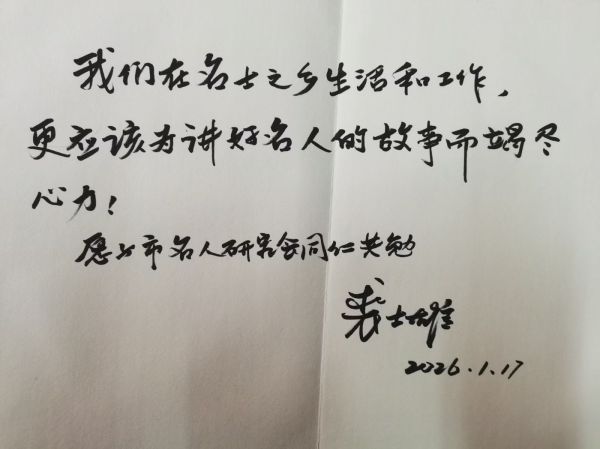 我们在名士之乡生活和工作，
更应该为讲好名人的故事而竭尽
心力！
愿与市名人研究会同仁共勉
裘士雄
2026.1.17